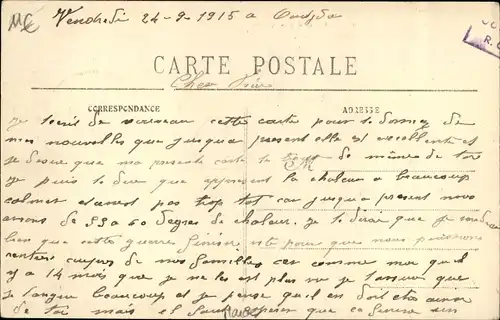 Vendredi 24-9-1915 a Oudjda
CARTE POSTALE
Cher
CORRESPONDANCE
ADRESSE
je tecrit de nouveau cette carte pour te donnez de
mes nouvelles que jusqua present elle st excellente et
je desire que ma presente carte te de même de toi
je puis te dire que apresent la chaleur a beaucoup
calmer et avant pas trop tot car jusqua present nous
avons de 55 a 60 degres de chaleur. je te dirai que je voudrai
bien que cette guerre finira vite pour que nous puissions
rentrer de nos familles car comme moi quil
y a 14 mois que je ne les est plus vu je tassure que
je langui beaucoup et je pense quil en doit etre
de toi mais il faut esperer que ca finira un
Maroc